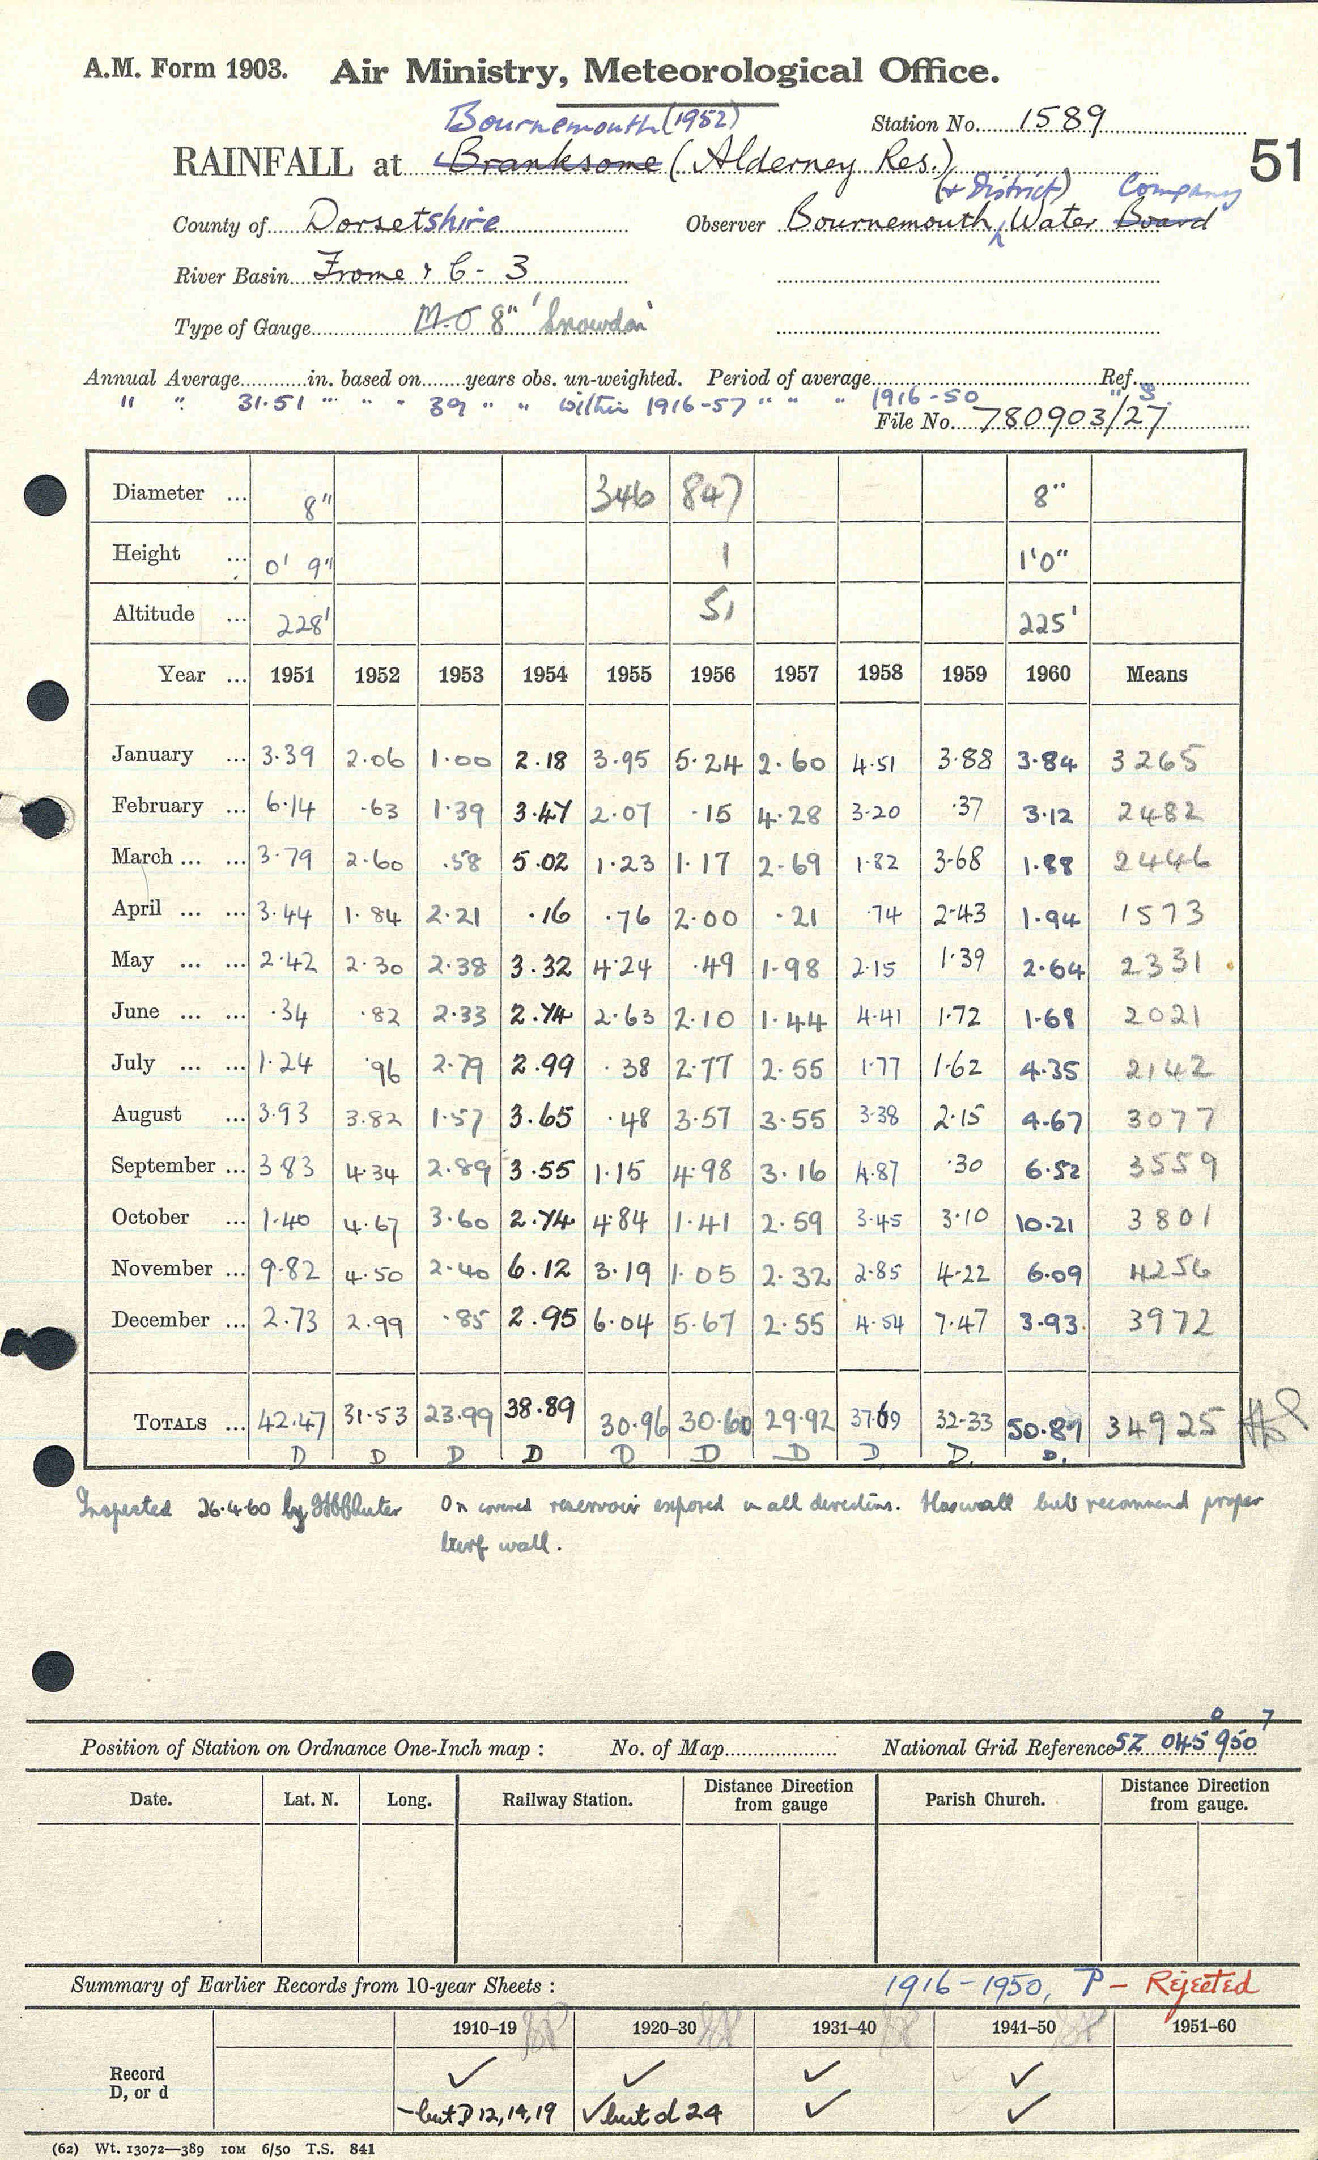 A.M. Form 1903. Air Ministry, Meteorological Office.
Bournemouth (1952)
Station No. 1589
RAINFALL at Branksome (Alderney Res.)
51
(& District) Company
County of Dorsetshire Observer Bournemouth Water Board
River Basin Frome & C - 3
Type of Gauge M.O 8" 'Snowdon'
Annual Average in. based on years obs. un-weighted. Period of average Ref.
" " 31.51 " " " 39 " " within 1916-57 " " " 1916-50 " S.
File No. 780903/27
Diameter ... 8" 346 847 8"
Height ... 0' 9" 1 1'0"
Altitude ... 228' 51 225'
Year ... 1951 1952 1953 1954 1955 1956 1957 1958 1959 1960 Means
January ... 3.39 2.06 1.00 2.18 3.95 5.24 2.60 4.51 3.88 3.84 3265
February ... 6.14 .63 1.39 3.47 2.07 .15 4.28 3.20 .37 3.12 2482
March ... ... 3.79 2.60 .58 5.02 1.23 1.17 2.69 1.82 3.68 1.88 2446
April ... ... 3.44 1.84 2.21 .16 .76 2.00 .21 .74 2.43 1.94 1573
May ... ... 2.42 2.30 2.38 3.32 4.24 .49 1.98 2.15 1.39 2.64 2331
June ... ... .34 .82 2.33 2.74 2.63 2.10 1.44 4.41 1.72 1.68 2021
July ... ... 1.24 .96 2.79 2.99 .38 2.77 2.55 1.77 1.62 4.35 2142
August ... 3.93 3.82 1.57 3.65 .48 3.57 3.55 3.38 2.15 4.67 3077
September ... 3.83 4.34 2.89 3.55 1.15 4.98 3.16 4.87 .30 6.52 3559
October ... 1.40 4.67 3.60 2.74 4.84 1.41 2.59 3.45 3.10 10.21 3801
November ... 9.82 4.50 2.40 6.12 3.19 1.05 2.32 2.85 4.22 6.09 4256
December ... 2.73 2.99 .85 2.95 6.04 5.67 2.55 4.54 7.47 3.93 3972
TOTALS ... 42.47 31.53 23.99 38.89 30.96 30.60 29.92 37.69 32.33 50.87 34925
D D D D D D D D D. D.
Inspected 26.4.60 by On covered reservoir exposed in all directions. Has wall but recommend proper
turf wall.
0 7
Position of Station on Ordnance One-Inch map : No. of Map National Grid Reference SZ 045 950
Date. Lat. N. Long. Railway Station. Distance Direction from gauge Parish Church. Distance Direction from gauge.
Summary of Earlier Records from 10-year Sheets : 1916-1950, P - Rejected
1910-19 1920-30 1931-40 1941-50 1951-60
Record ✓ ✓ ✓ ✓
D, or d - but D 12,14,19 ✓ but d 24 ✓ ✓
(62) Wt. 13072—389 10M 6/50 T.S. 841